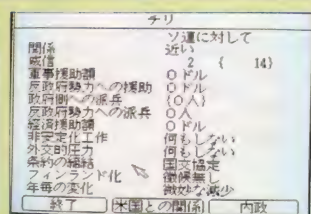 チリ
ソ連に対して
関係 近い
威信 2 { 14}
軍事援助額 0ドル
反政府勢力への援助 0ドル
政府側への派兵 {0人}
反政府勢力への派兵 0人
経済援助額 0ドル
非安定化工作 何もしない
外交的圧力 何もしない
条約の締結 国交協定
フィンランド化 徴候無し
年毎の変化 微妙な減少
終了 米国との関係 内政